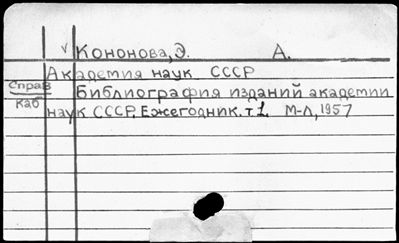 √ Кононова, Э. А.
Академия наук СССР
Справ
каб
Библиография изданий академии
наук СССР. Ежегодник. т 1. М-Л, 1957